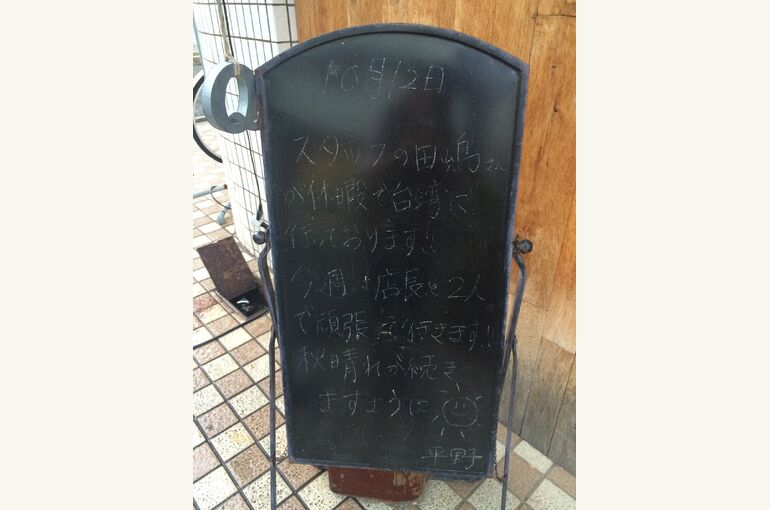 10月12日
スタッフの田嶋さん
が休暇で台湾に
行っております!!
今週は店長と2人
で頑張って行きます!!
秋晴れが続き
ますように
平野